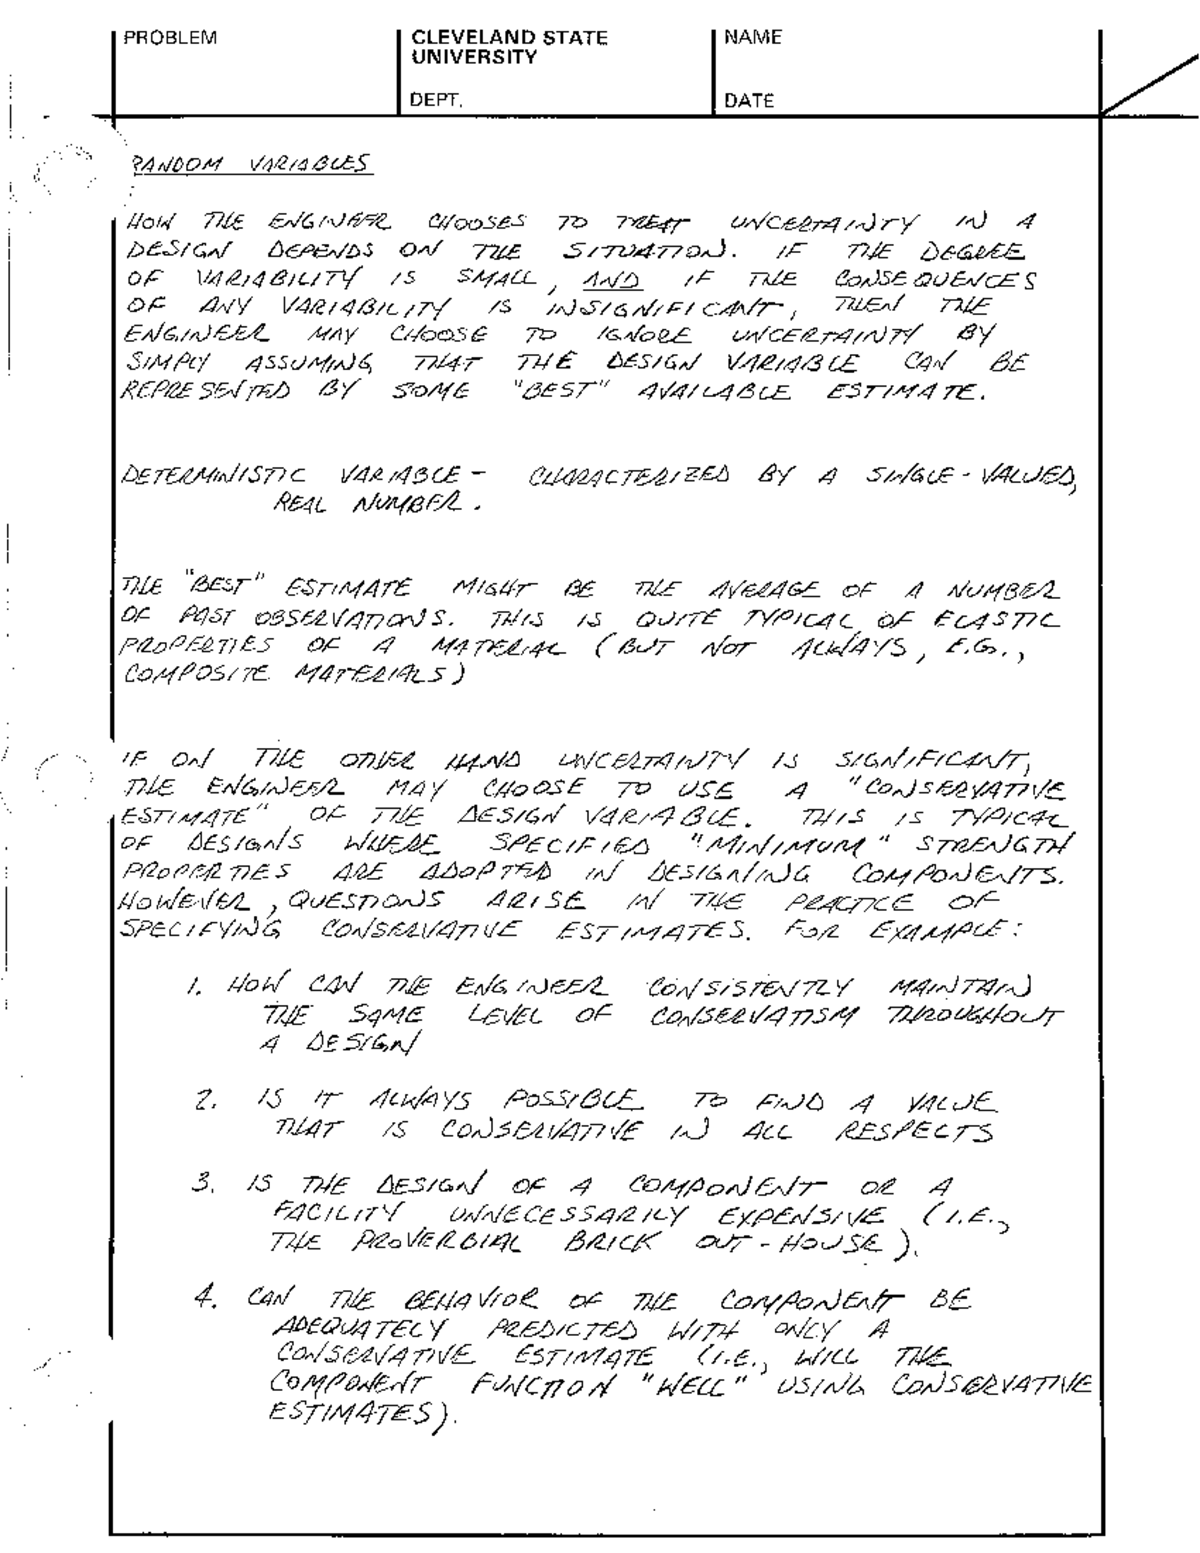 PROBLEM
CLEVELAND STATE
UNIVERSITY
DEPT.
NAME
DATE
RANDOM VARIABLES
HOW THE ENGINEER CHOOSES TO TREAT UNCERTAINTY IN A
DESIGN DEPENDS ON THE SITUATION. IF THE DEGREE
OF VARIABILITY IS SMALL, AND IF THE CONSEQUENCES
OF ANY VARIABILITY IS INSIGNIFICANT, THEN THE
ENGINEER MAY CHOOSE TO IGNORE UNCERTAINTY BY
SIMPLY ASSUMING THAT THE DESIGN VARIABLE CAN BE
REPRESENTED BY SOME "BEST" AVAILABLE ESTIMATE.
DETERMINISTIC VARIABLE - CHARACTERIZED BY A SINGLE-VALUED,
REAL NUMBER.
THE "BEST" ESTIMATE MIGHT BE THE AVERAGE OF A NUMBER
OF PAST OBSERVATIONS. THIS IS QUITE TYPICAL OF ELASTIC
PROPERTIES OF A MATERIAL (BUT NOT ALWAYS, E.G.,
COMPOSITE MATERIALS)
IF ON THE OTHER HAND UNCERTAINTY IS SIGNIFICANT,
THE ENGINEER MAY CHOOSE TO USE A "CONSERVATIVE
ESTIMATE" OF THE DESIGN VARIABLE. THIS IS TYPICAL
OF DESIGNS WHERE SPECIFIED "MINIMUM" STRENGTH
PROPERTIES ARE ADOPTED IN DESIGNING COMPONENTS.
HOWEVER, QUESTIONS ARISE IN THE PRACTICE OF
SPECIFYING CONSERVATIVE ESTIMATES. FOR EXAMPLE:
1. HOW CAN THE ENGINEER CONSISTENTLY MAINTAIN
THE SAME LEVEL OF CONSERVATISM THROUGHOUT
A DESIGN
2. IS IT ALWAYS POSSIBLE TO FIND A VALUE
THAT IS CONSERVATIVE IN ALL RESPECTS
3. IS THE DESIGN OF A COMPONENT OR A
FACILITY UNNECESSARILY EXPENSIVE (I.E.,
THE PROVERBIAL BRICK OUT-HOUSE).
4. CAN THE BEHAVIOR OF THE COMPONENT BE
ADEQUATELY PREDICTED WITH ONLY A
CONSERVATIVE ESTIMATE (I.E., WILL THE
COMPONENT FUNCTION "WELL" USING CONSERVATIVE
ESTIMATES).